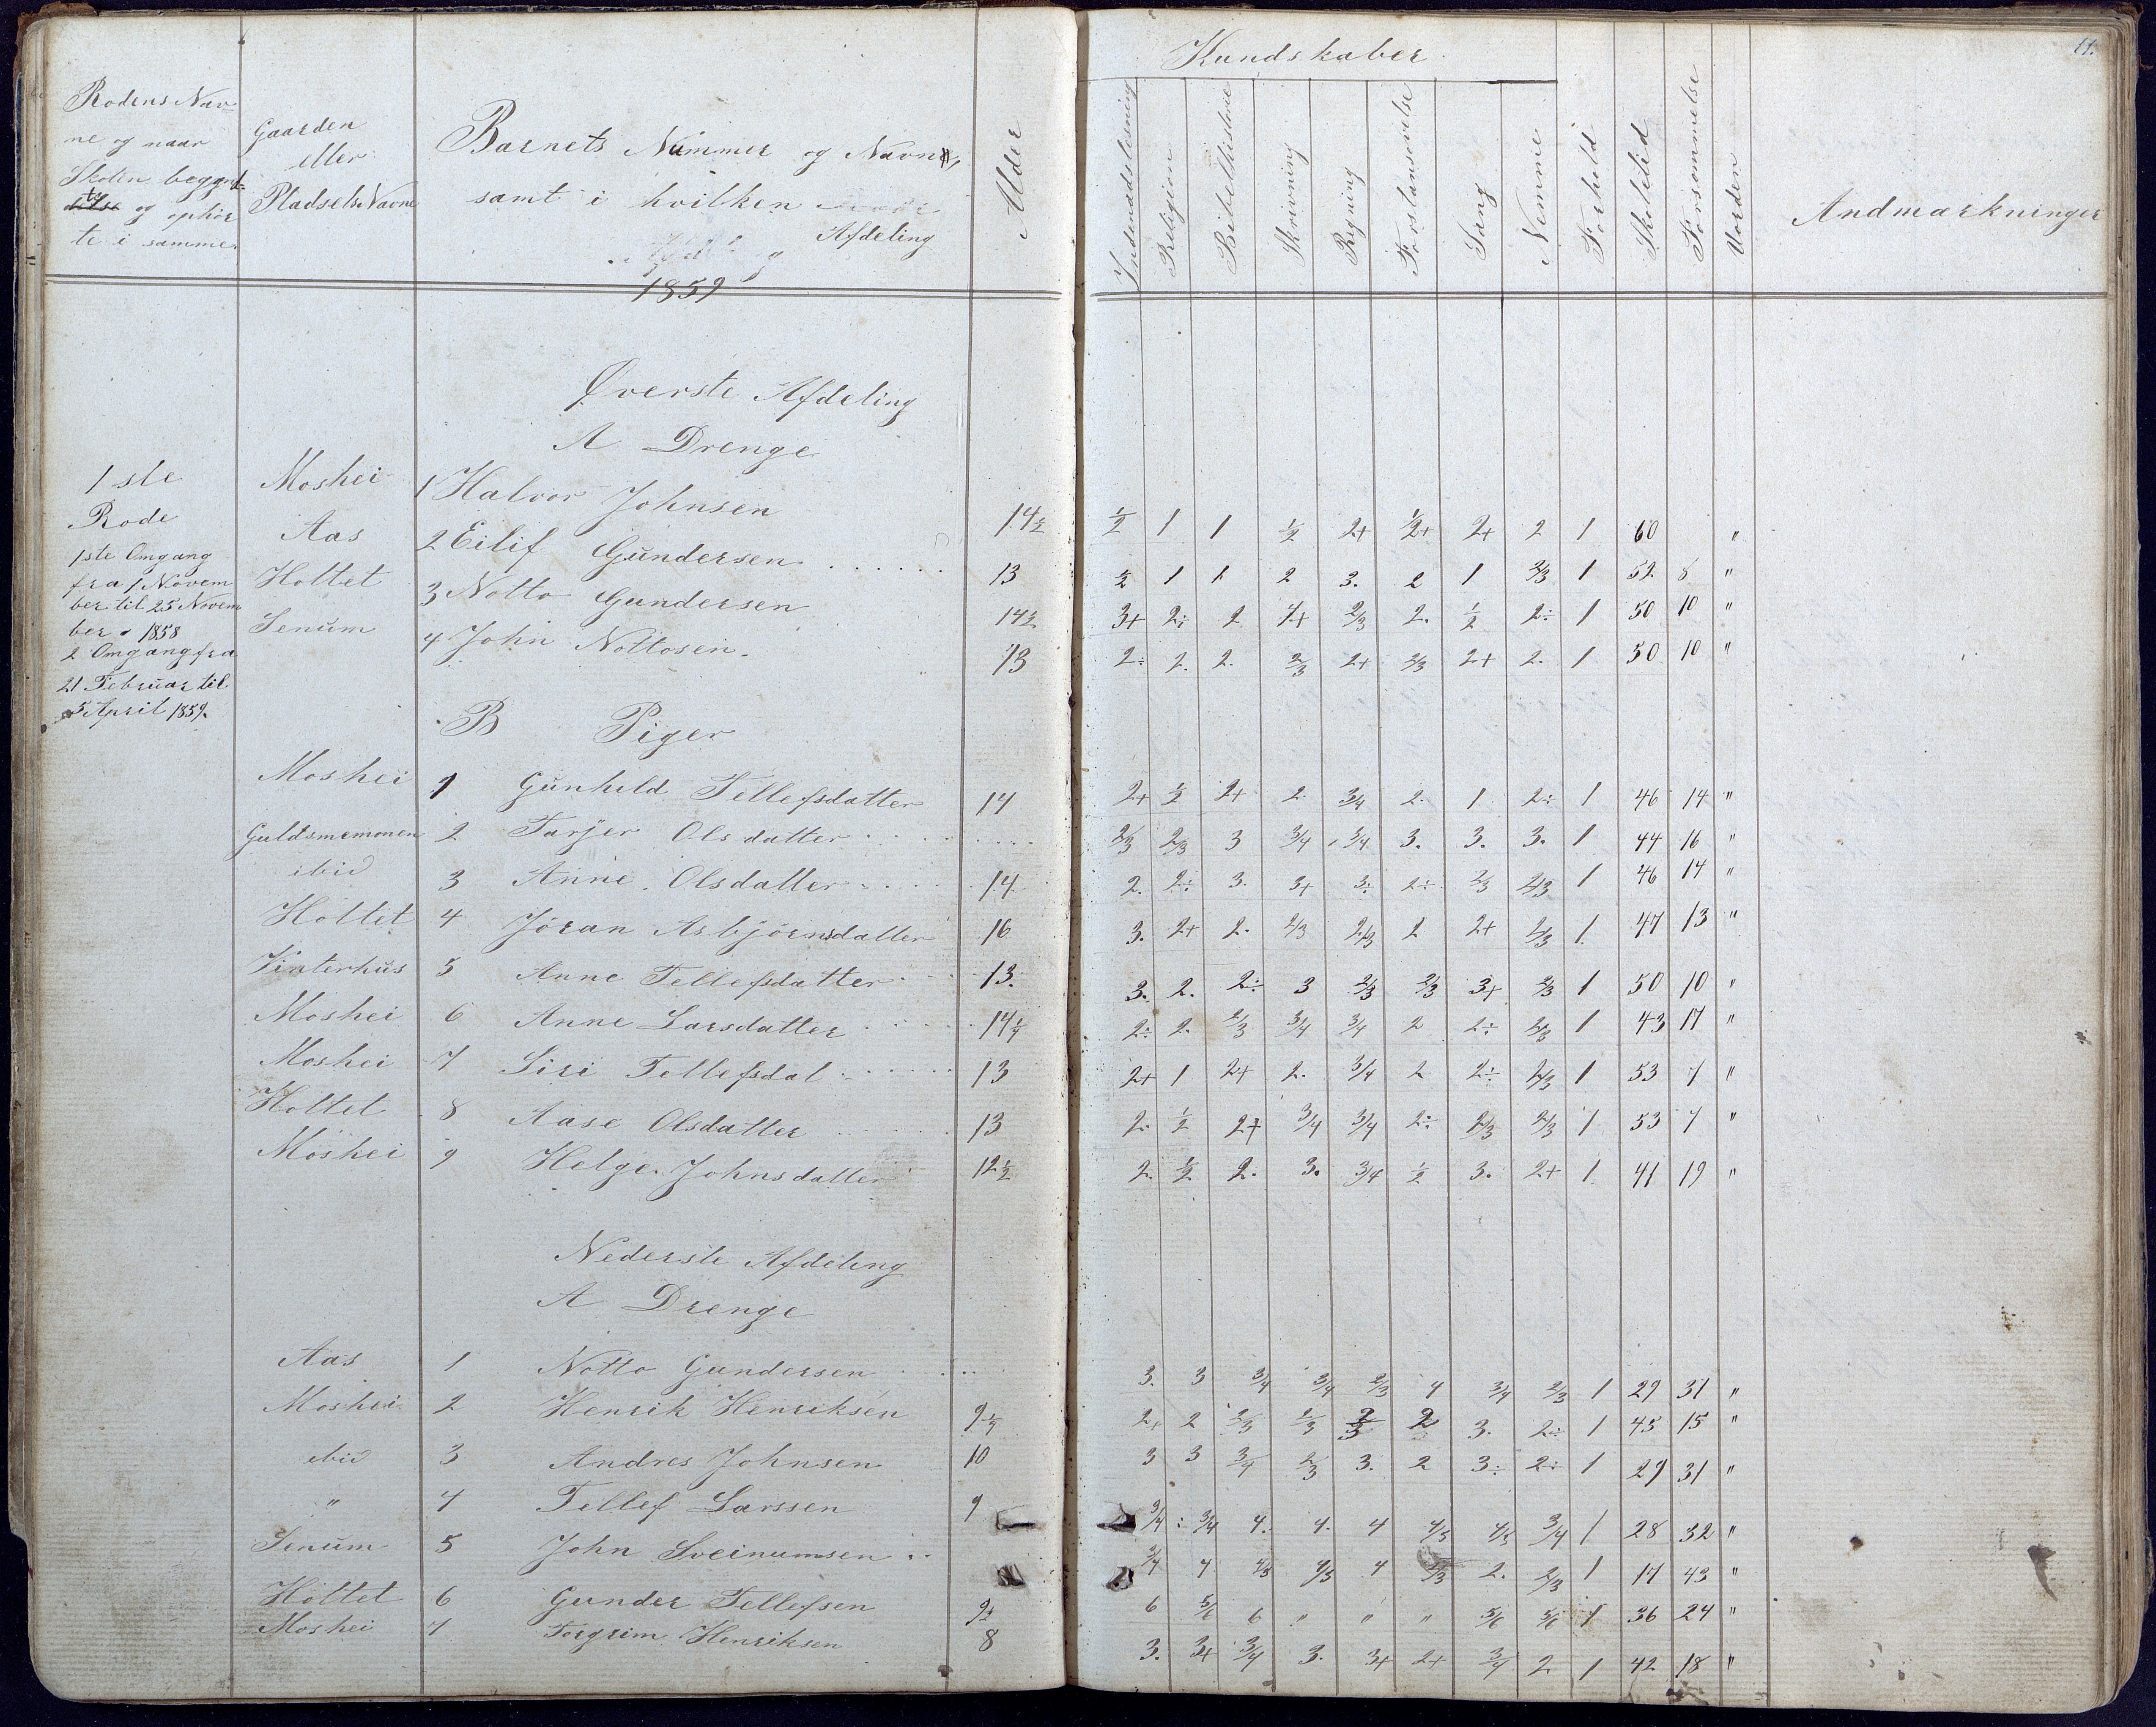 Rodens Nav-
ne og naar
Skolen begynd-
te og ophør
te i samme.
Gaarden
eller
Pladsets Navne
Barnets Nummer og Navn,
samt i hvilken
Afdeling
1859
Alder
Kundskaber
Indenadslesning
Religion
Bibelhistorie
Skrivning
Regning
Forstansøvelse
Sang
Nemme
Forhold
Skoletid
Forsømmelse
Uorden
Andmærkninger
11.
Øverste Afdeling
A Drenge
1ste
Rode
1ste Omgang
fra 1 Novem
ber til 25 Novem
ber 1858
2 Omgang fra
21 Februar til
5 April 1859.
Moshei 1 Halvor Johnsen 14½ ½ 1 1 ½ 2+ ½+ 2+ 2 1 60 "
Aas 2 Eilif Gundersen 13 ½ 1 1 2 3. 2 1 2/3 1 52 8 "
Hottet 3 Notto Gundersen 14½ 3+ 2÷ 2 4+ 2/3 2. ½ 2÷ 1 50 10 "
Senum 4 John Nottosen 13 2÷ 2. 2. 2/3 2+ 2/3 2+ 2. 1 50 10 "
B Piger
Moshei 1 Gunhild Tellefsdatter 14 2+ ½ 2+ 2. 3/4 2. 1 2÷ 1 46 14 "
Guldsmemonen 2 Tarjer Olsdatter .... 2/3 2/3 3 3/4 3/4 3. 3. 3. 1 44 16 "
ibid 3 Anne Olsdatter 14 2. 2÷ 3. 3+ 3÷ 2÷ 2/3 2/3 1 46 14 "
Hottet 4 Jöran Asbjörnsdatter 16 3. 2+ 2. 2/3 2/3 2 2+ 2/3 1. 47 13 "
Vinterhus 5 Anne Tellefsdatter 13. 3. 2. 2÷ 3 2/3 2/3 3+ 2/3 1 50 10 "
Moshei 6 Anne Larsdatter 14¼ 2÷ 2. 2/3 3/4 3/4 2 2÷ 2/3 1 43 17 "
Moshei 7 Siri Tellefsdat 13 2+ 1 2+ 2. 3/4 2 2÷ 2/3 1 53 7 "
Hottet 8 Aase Olsdatter 13 2. ½ 2+ 3/4 3/4 2÷ 2/3 2/3 1 53 7 "
Moshei 9 Helge Johnsdatter 12½ 2. ½ 2. 3. 3/4 ½ 3. 2+ 1 41 19 "
Nederste Afdeling
A Drenge
Aas 1 Notto Gundersen .... 3. 3 3/4 3/4 2/3 4 3/4 2/3 1 29 31 "
Moshei 2 Henrik Henriksen 9¼ 2+ 2 2/3 2/3 2/3 2 3. 2÷ 1 45 15 "
ibid 3 Andres Johnsen 10 3 3 3/4 2/3 3. 2 3÷ 2÷ 1 29 31 "
" 4 Tellef Larssen 9 3/4 3/4 4. 4. 4 4/5 4/5 3/4 1 28 32 "
Senum 5 John Sveinumsen 3/4 4 4/5 4/5 4 2/3 2. 2/3 1 17 43 "
Hottet 6 Gunder Tellefsen 9½ 6 5/6 6 " " " 5/6 5/6 1 36 24 "
Moshei 7 Torgrim Henriksen 8 3. 3+ 3/4 3. 3+ 2+ 3/4 2 1 42 18 "